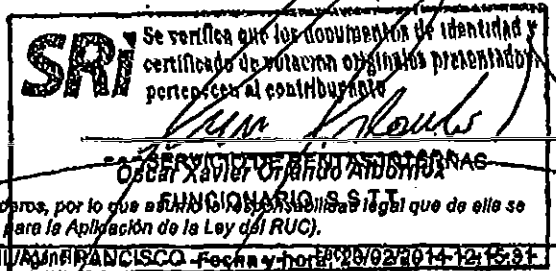 SRi Se verifica que los documentos de identidad y
certificado de votación originales presentados
pertenecen al contribuyente
SERVICIO DE RENTAS INTERNAS
Oscar Xavier Orlando Albornoz
FUNCIONARIO S.S.T.T.
deros, por lo que asumo la responsabilidad legal que de ella se
para la Aplicación de la Ley del RUC).
FRANCISCO Fecha y hora: 28/02/2014 12:15:31